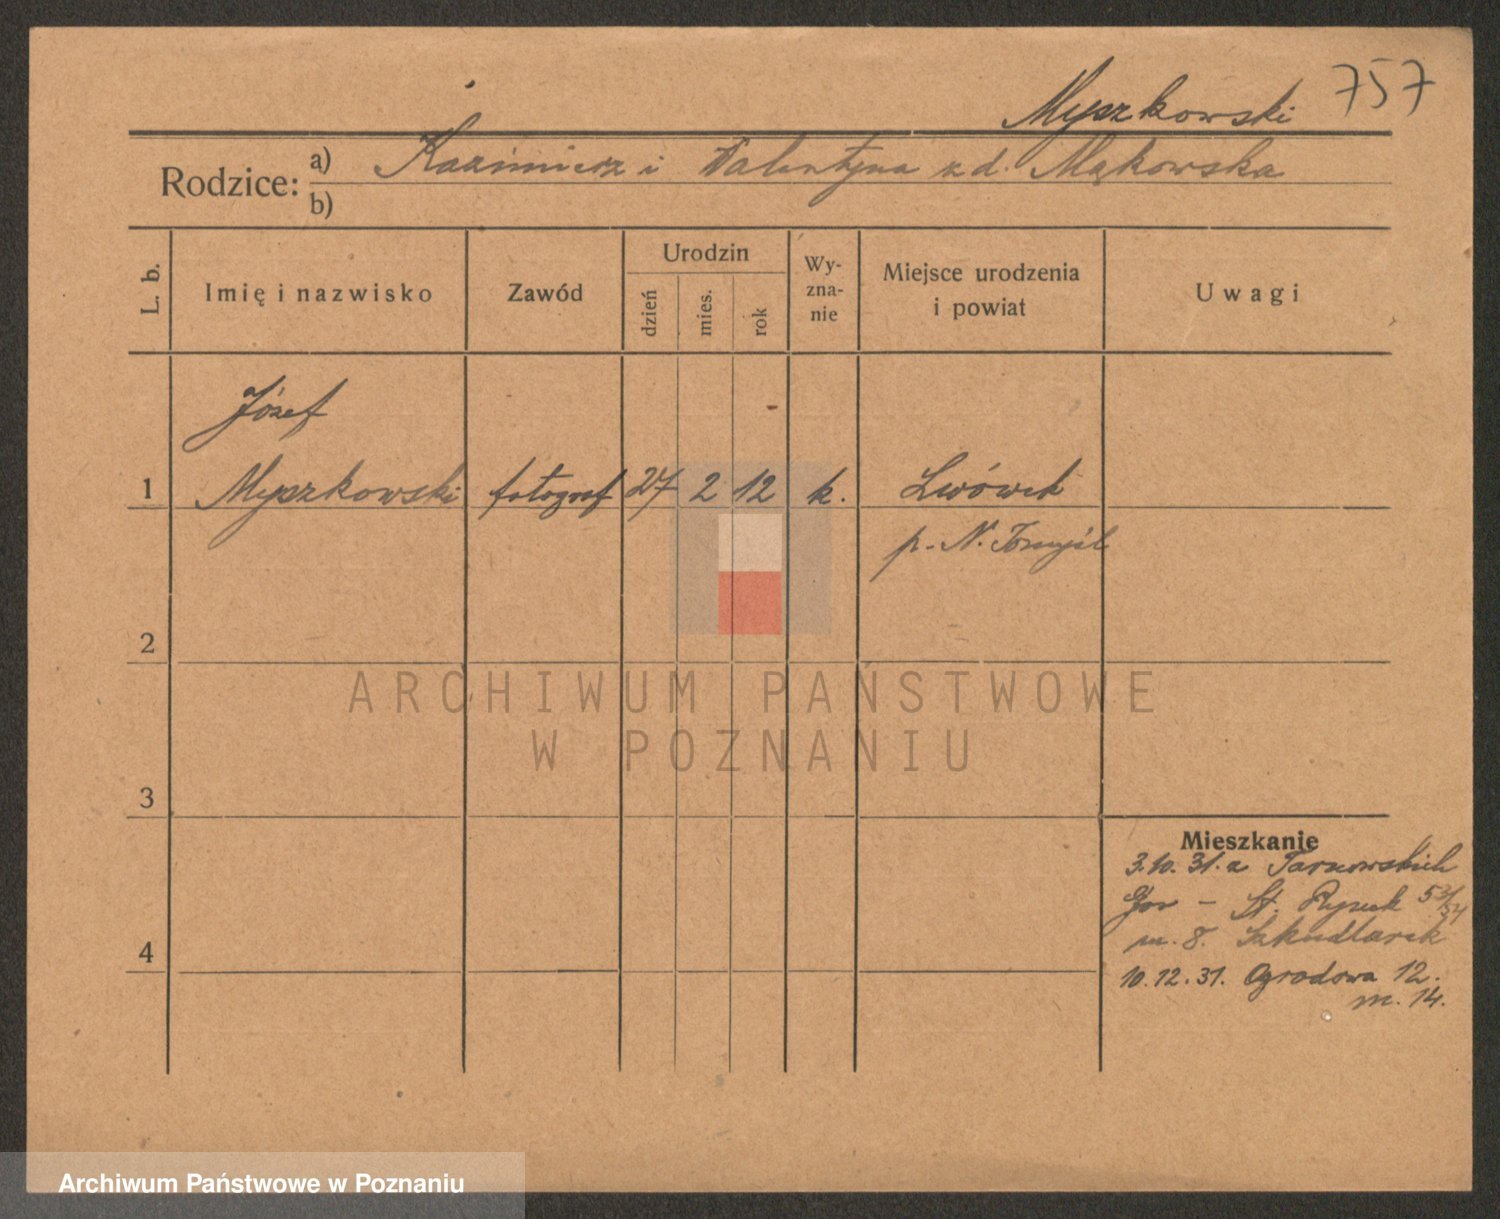 Myszkowski 757
Rodzice: a) Kazimierz i Walentyna z d. Mąkowska
b)
L. b.
Imię i nazwisko
Zawód
Urodzin
dzień
mies.
rok
Wy-
zna-
nie
Miejsce urodzenia
i powiat
Uwagi
Józef
1 Myszkowski fotograf 27 2 12 k. Lwówek
p. N. Tomyśl
2
3
4
Mieszkanie
3.10.31. z Tarnowskich
Gór - St. Rynek 53/54
m. 8. Szkudlarek
10.12.31. Ogrodowa 12.
m. 14.
ARCHIWUM PAŃSTWOWE
W POZNANIU
Archiwum Państwowe w Poznaniu